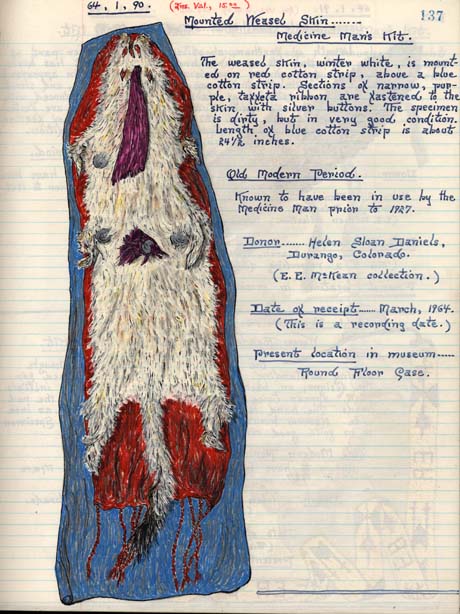 64,1,90. (Ins. Val., 15.00)
137
Mounted Weasel Skin.......
Medicine Man's Kit.
The weasel skin, winter white, is mount-
ed on red cotton strip, above a blue
cotton strip. Sections of narrow, pur-
ple, taffeta ribbon are fastened to the
skin, with silver buttons. The specimen
is dirty, but in very good condition.
Length of blue cotton strip is about
24 1/2 inches.
Old Modern Period.
Known to have been in use by the
Medicine Man prior to 1927.
Donor...... Helen Sloan Daniels,
Durango, Colorado.
(E. E. McKean collection.)
Date of receipt..... March, 1964.
(This is a recording date.)
Present location in museum.....
Round Floor Case.